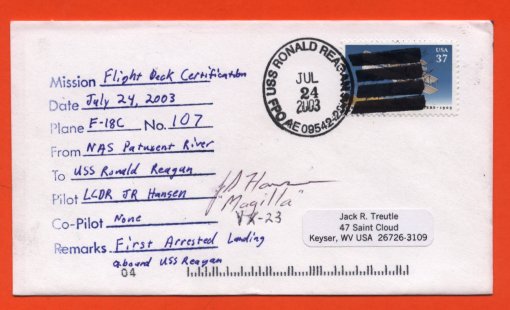 Mission Flight Deck Certification
Date July 24, 2003
Plane F-18C No. 107
From NAS Patuxent River
To USS Ronald Reagan
Pilot LCDR JR Hansen
Co-Pilot None
Remarks First Arrested Landing
aboard USS Reagan
04
USS RONALD REAGAN
JUL
24
2003
FPO AE 09542
USA
37
"Magilla"
VX-23
Jack R. Treutle
47 Saint Cloud
Keyser, WV USA 26726-3109